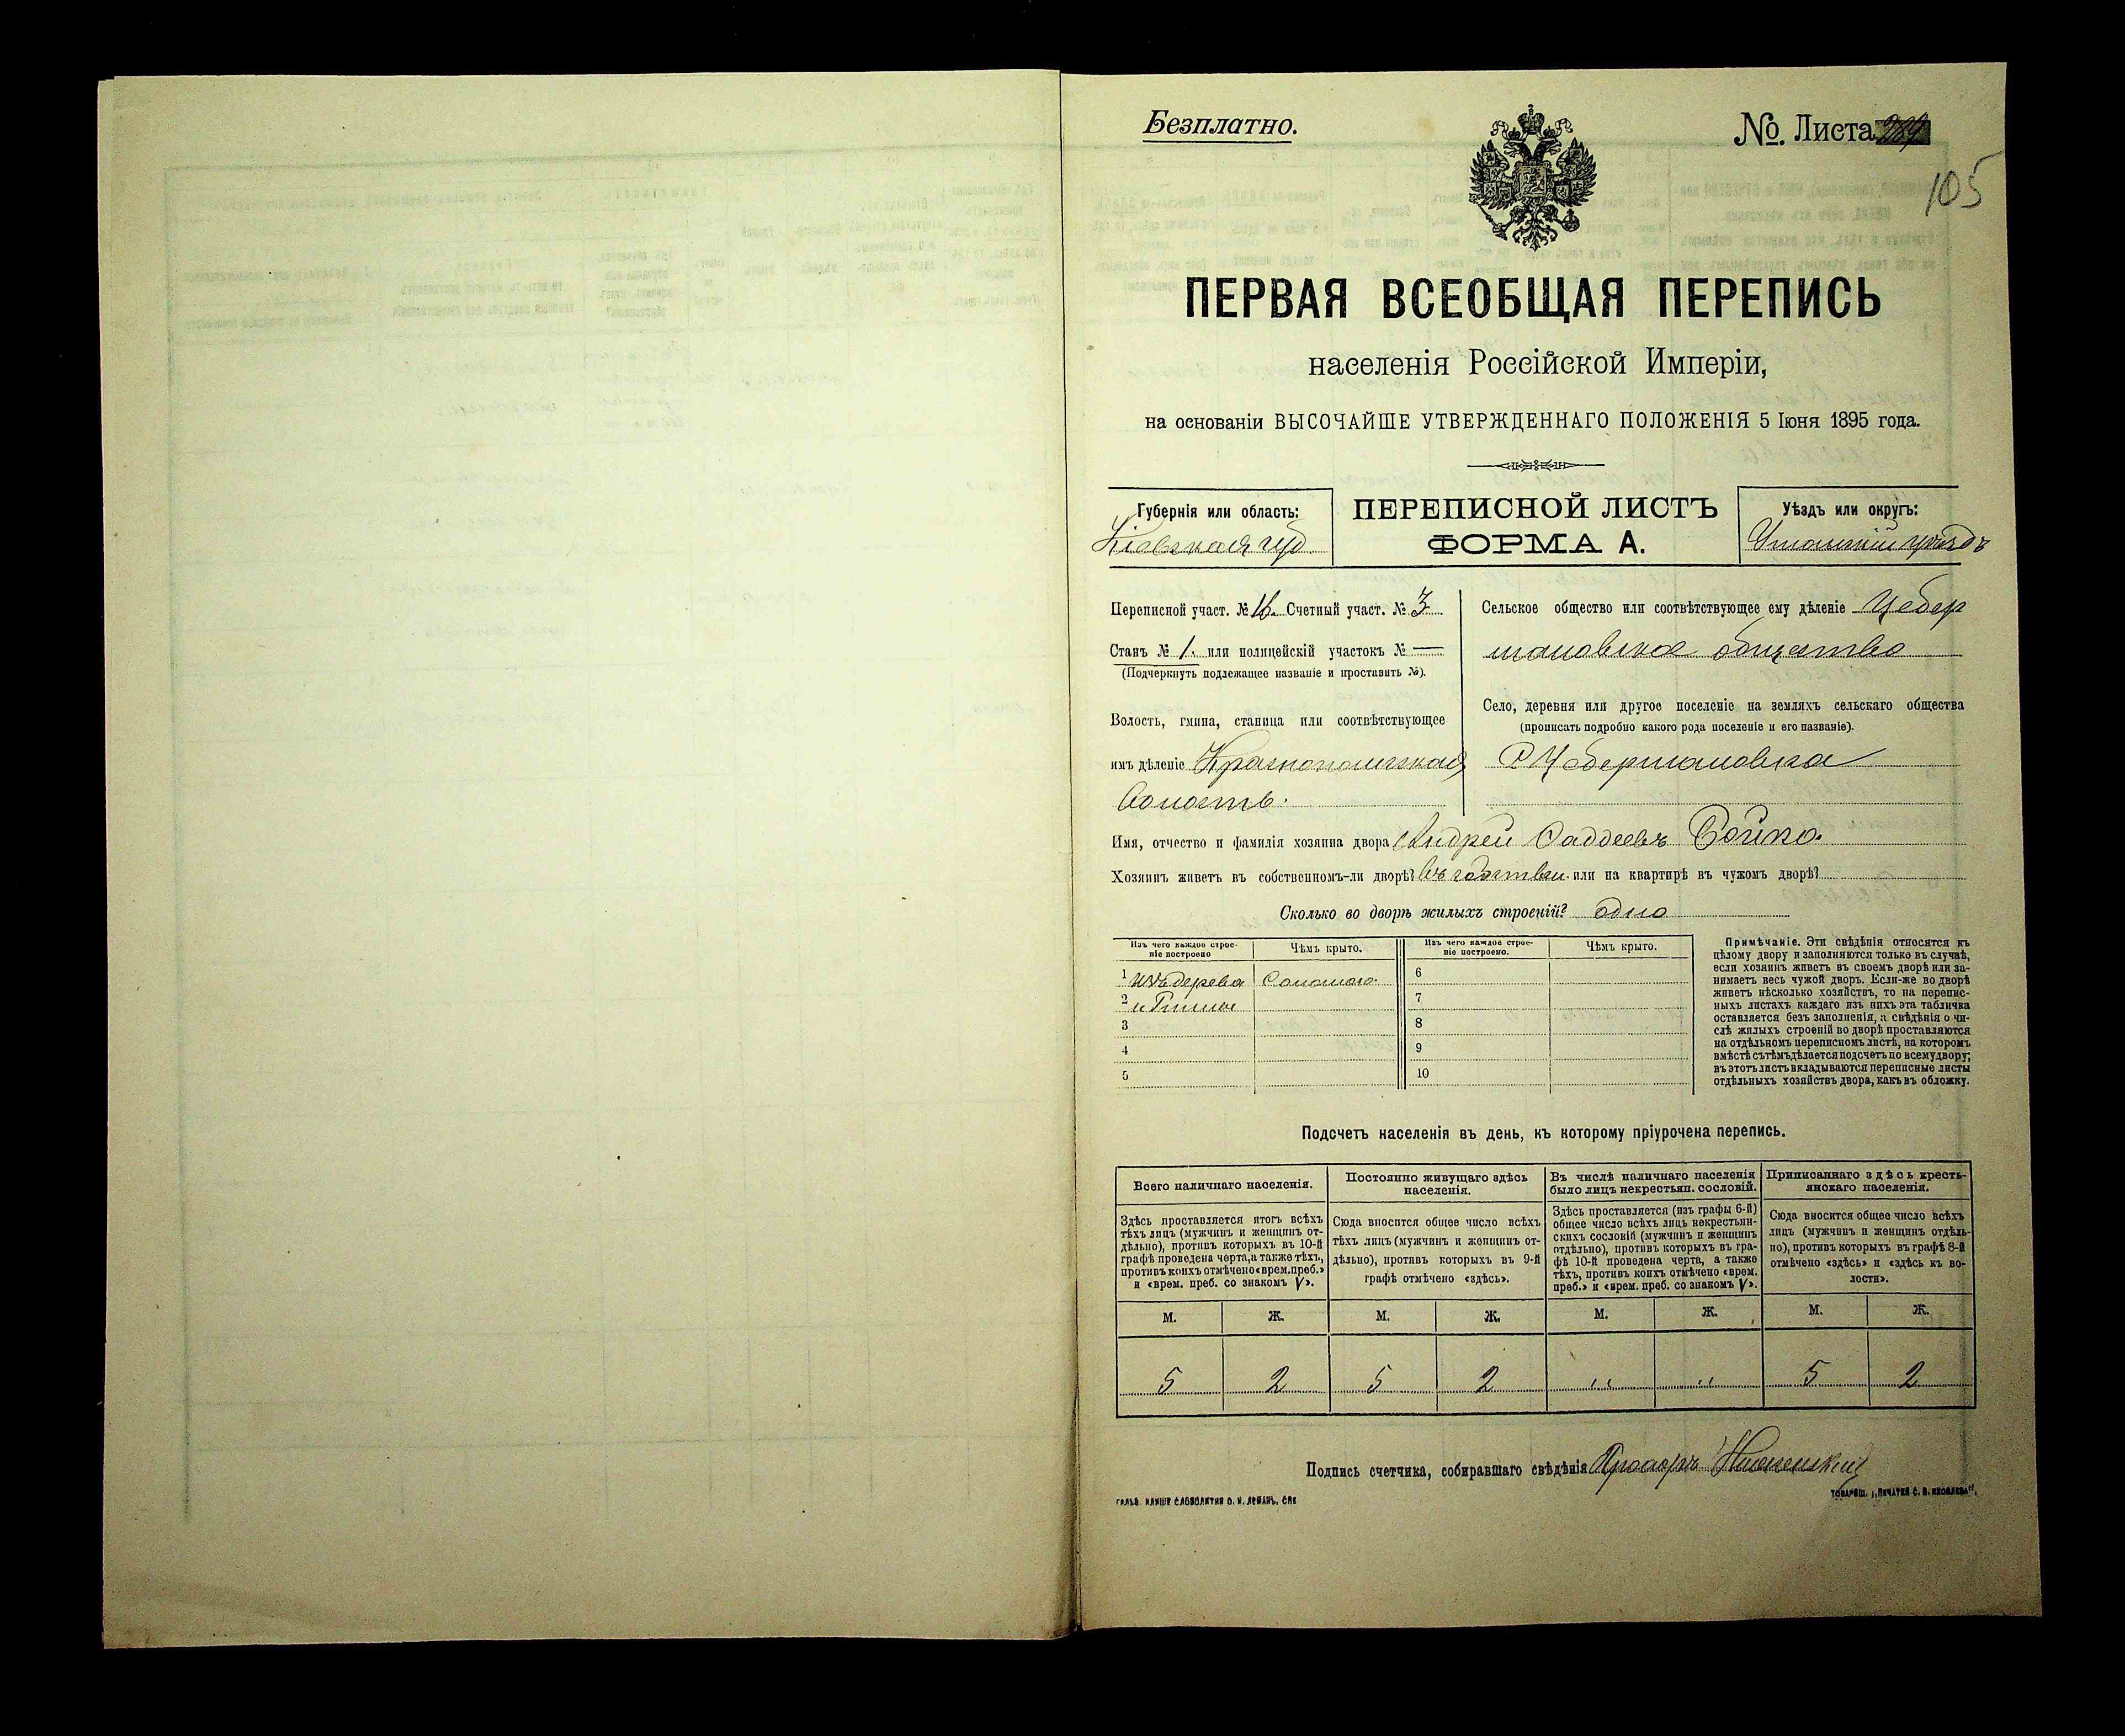 Безплатно.
№ Листа 289
105
ПЕРВАЯ ВСЕОБЩАЯ ПЕРЕПИСЬ
населенія Россійской Имперіи,
на основаніи ВЫСОЧАЙШЕ УТВЕРЖДЕННАГО ПОЛОЖЕНІЯ 5 Іюня 1895 года.
Губернія или область:
Кіевская губ.
ПЕРЕПИСНОЙ ЛИСТЪ
ФОРМА А.
Уѣздъ или округъ:
Уманскій уѣздъ
Переписной участ. № 16. Счетный участ. № 3
Станъ № 1. или полицейскій участокъ № —
(Подчеркнуть подлежащее названіе и проставить №).
Волость, гмина, станица или соотвѣтствующее
имъ дѣленіе Краснопольская
волость.
Сельское общество или соотвѣтствующее ему дѣленіе Цебер
мановское общество
Село, деревня или другое поселеніе на земляхъ сельскаго общества
(прописать подробно какого рода поселеніе и его названіе).
Цебермановка
Имя, отчество и фамилія хозяина двора Андрей Фаддеевъ Бойко.
Хозяинъ живетъ въ собственномъ-ли дворѣ? или на квартирѣ въ чужомъ дворѣ?
Сколько во дворѣ жилыхъ строеній? одно
Изъ чего каждое строе-
ніе построено
Чѣмъ крыто.
Изъ чего каждое строе-
ніе построено.
Чѣмъ крыто.
1 изъ дерева Соломою
2 и глины
3
4
5
6
7
8
9
10
Примѣчаніе. Эти свѣдѣнія относятся къ
цѣлому двору и заполняются только въ случаѣ,
если хозяинъ живетъ въ своемъ дворѣ или за-
нимаетъ весь чужой дворъ. Если-же во дворѣ
живетъ нѣсколько хозяйствъ, то на перепис-
ныхъ листахъ каждаго изъ нихъ эта табличка
оставляется безъ заполненія, а свѣдѣнія о чи-
слѣ жилыхъ строеній во дворѣ проставляются
на отдѣльномъ переписномъ листѣ, на которомъ
вмѣстѣ съ тѣмъ дѣлается подсчетъ по всему двору;
въ этотъ листъ вкладываются переписные листы
отдѣльныхъ хозяйствъ двора, какъ въ обложку.
Подсчетъ населенія въ день, къ которому пріурочена перепись.
Всего наличнаго населенія.
Здѣсь проставляется итогъ всѣхъ
тѣхъ лицъ (мужчинъ и женщинъ от-
дѣльно), противъ которыхъ въ 10-й
графѣ проведена черта, а также тѣхъ,
противъ коихъ отмѣчено «врем. преб.»
и «врем. преб. со знакомъ V».
Постоянно живущаго здѣсь
населенія.
Сюда вносится общее число всѣхъ
тѣхъ лицъ (мужчинъ и женщинъ от-
дѣльно), противъ которыхъ въ 9-й
графѣ отмѣчено «здѣсь».
Въ числѣ наличнаго населенія
было лицъ некрестьян. сословій.
Здѣсь проставляется (изъ графы 6-й)
общее число всѣхъ лицъ некрестьян-
скихъ сословій (мужчинъ и женщинъ
отдѣльно), противъ которыхъ въ гра-
фѣ 10-й проведена черта, а также
тѣхъ, противъ коихъ отмѣчено «врем.
преб.» и «врем. преб. со знакомъ V».
Приписаннаго здѣсь кресть-
янскаго населенія.
Сюда вносится общее число всѣхъ
лицъ (мужчинъ и женщинъ отдѣль-
но), противъ которыхъ въ графѣ 8-й
отмѣчено «здѣсь» и «здѣсь къ во-
лости».
М. Ж. М. Ж. М. Ж. М. Ж.
5 2 5 2 " " 5 2
Подпись счетчика, собиравшаго свѣдѣнія
ГАЛЬВ. КЛИШЕ СЛОВОЛИТНИ О. И. ЛЕМАНЪ, СПБ
ТОВАРИЩ. „ПЕЧАТНЯ С. П. ЯКОВЛЕВА".